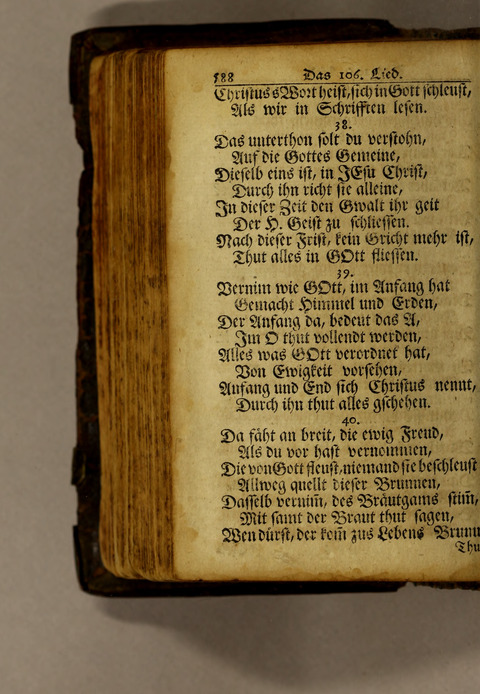 588 Das 106. Lied.
Christus s Wort heist, sich in Gott schleust,
Als wir in Schrifften lesen.
38.
Das unterthon solt du verstohn,
Auf die Gottes Gemeine,
Dieselb eins ist, in JEsu Christ,
Durch ihn richt sie alleine,
In dieser Zeit den Gwalt ihr geit
Der H. Geist zu schliessen.
Nach dieser Frist, kein Gricht mehr ist,
Thut alles in GOtt fliessen.
39.
Vernim wie GOtt, im Anfang hat
Gemacht Himmel und Erden,
Der Anfang da, bedeut das A,
Im O thut vollendt werden,
Alles was GOtt verordnet hat,
Von Ewigkeit vorsehen,
Anfang und End sich Christus nennt,
Durch ihn thut alles gschehen.
40.
Da fäht an breit, die ewig Freud,
Als du vor hast vernommen,
Die von Gott fleust, niemand sie beschleust
Allweg quellt dieser Brunnen,
Dasselb vernim̃, des Bräutgams stim̃,
Mit samt der Braut thut sagen,
Wen dürst, der kom̃ zus Lebens Brunn
Thu